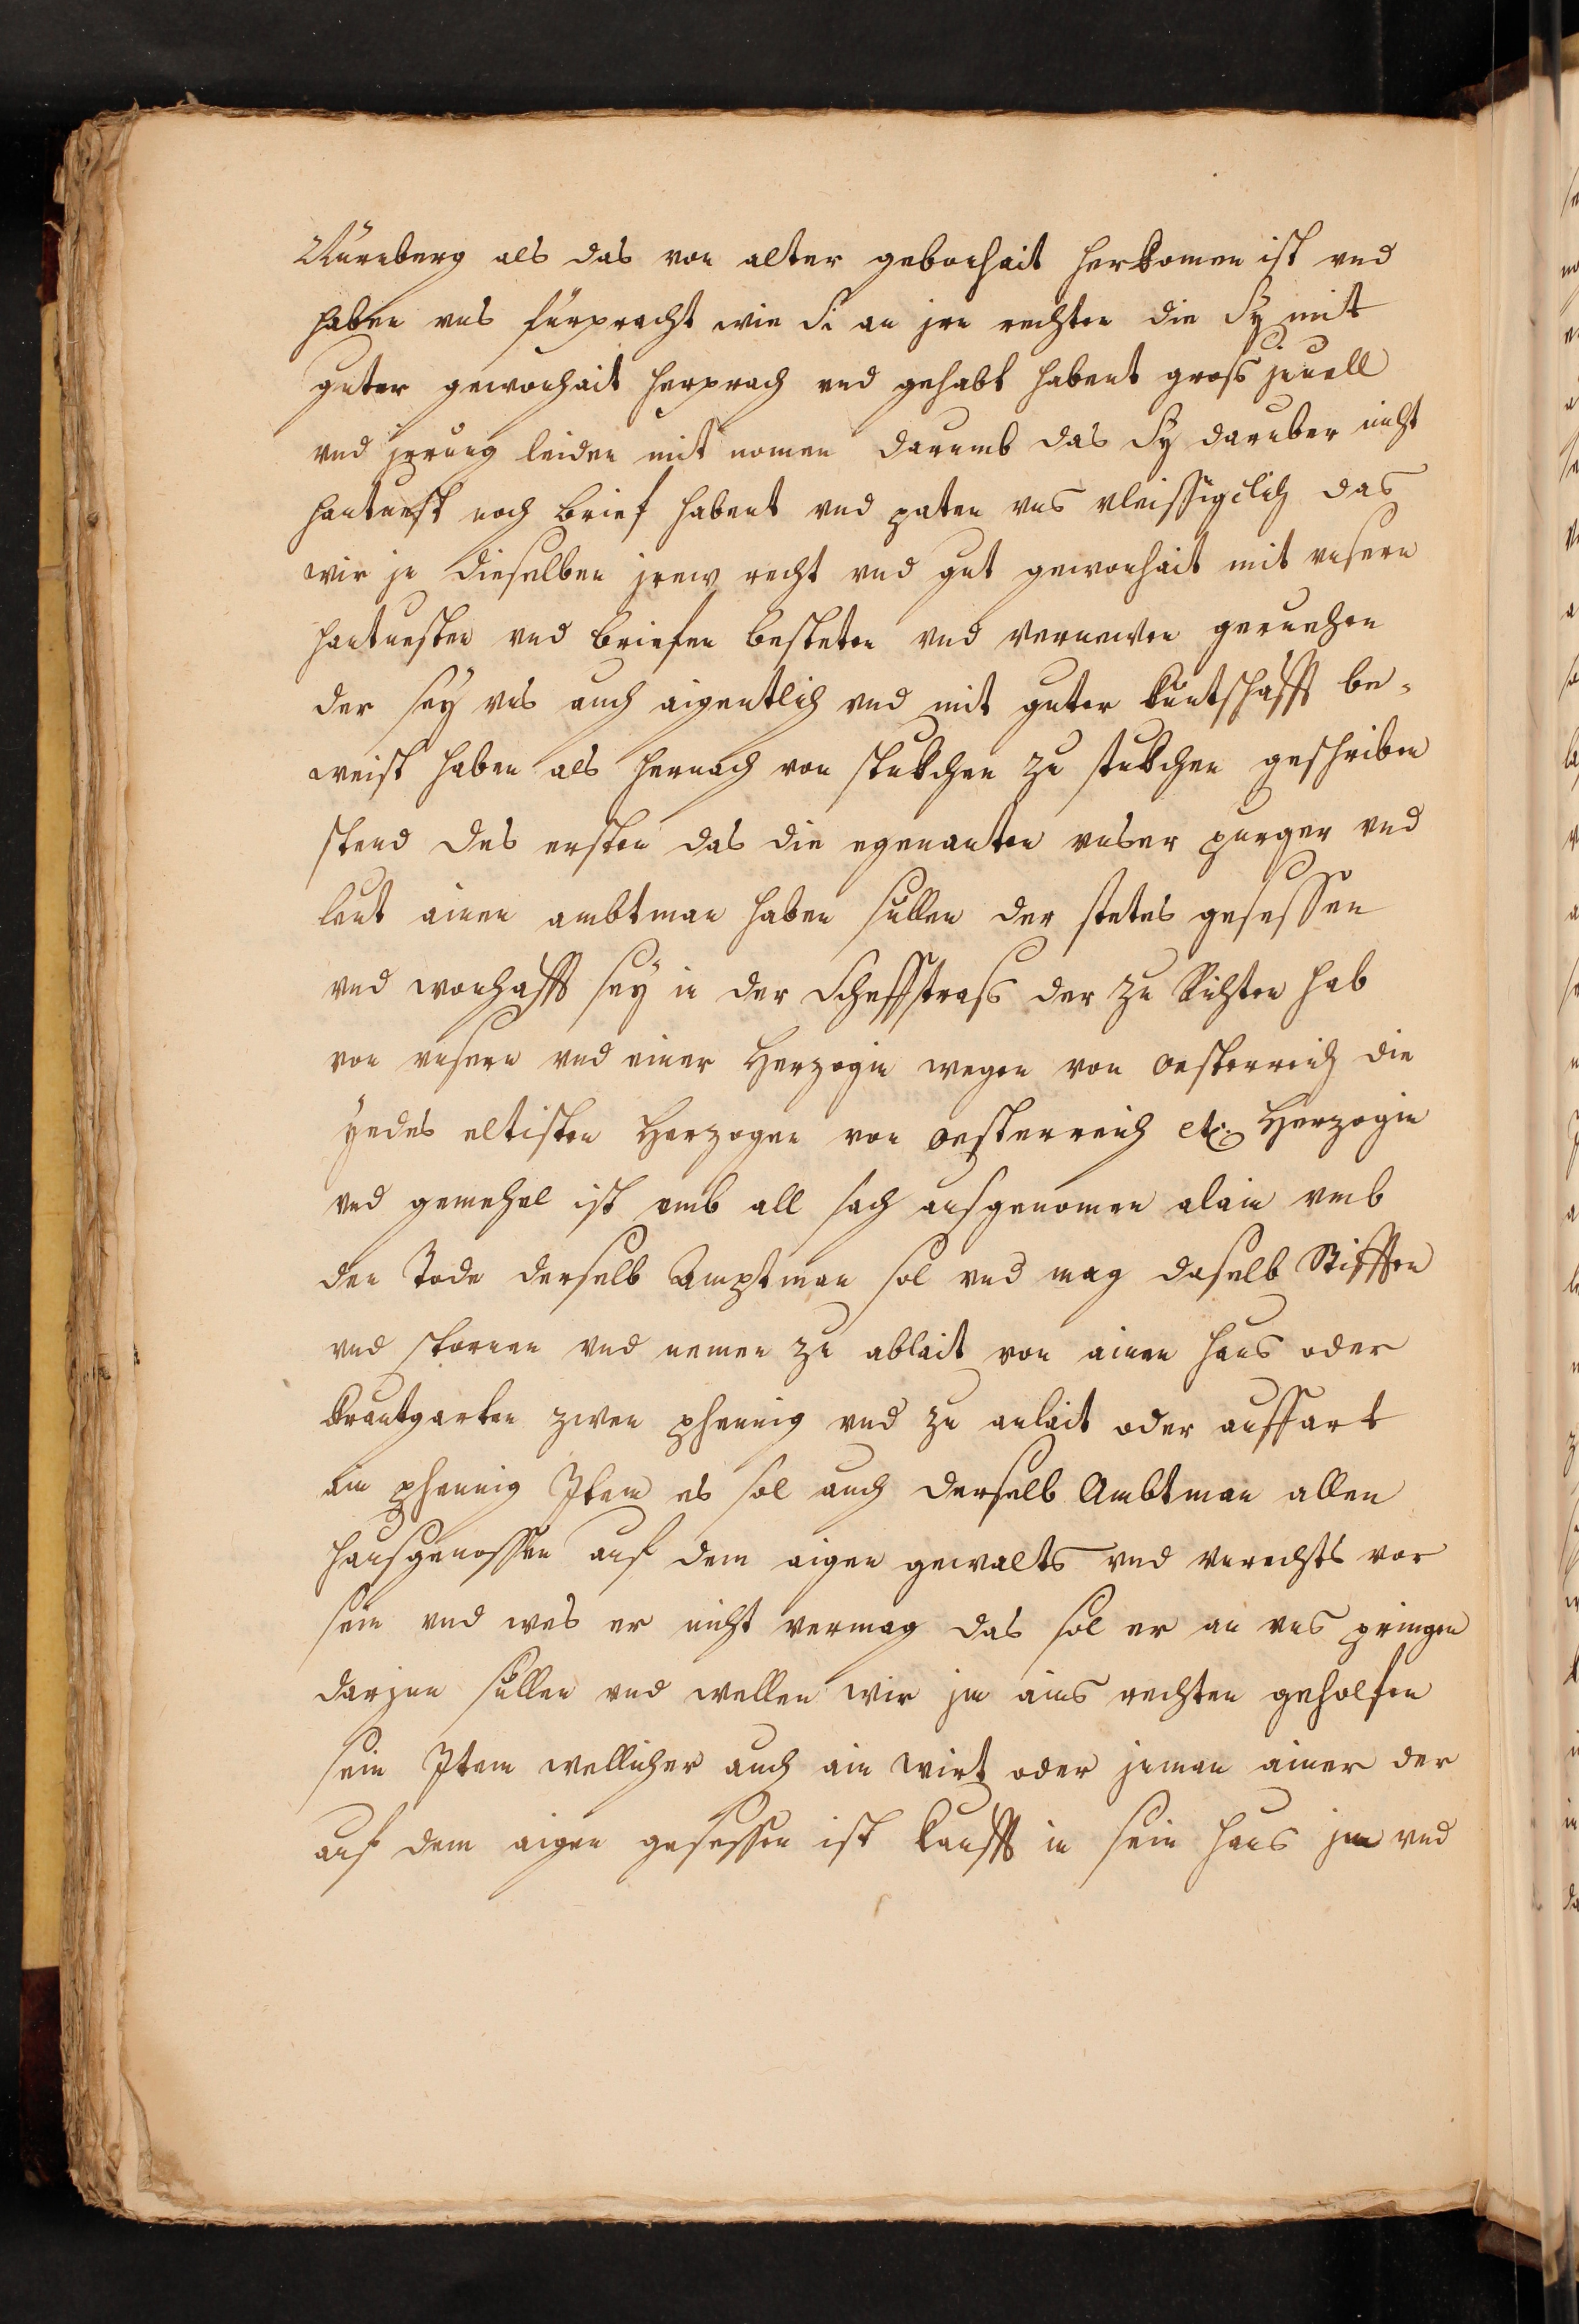 Nürnberg als das von alter gebonhait herkomen ist vnd
haben vns fürpracht wie Si an jrn rechten die Sy mit
guter gewonhait herprach vnd gehabt habent gross jnuell
vnd jrrung leiden mit namen darumb das Sy daruber nicht
hantuest noch brief habent vnd paten vns vleissigclich das
wir jn dieselben jrew recht vnd gut gewonhait mit vnsern
hantuesten vnd briefen besteten vnd vernewen geruchen
der sey vns auch aigentlich vnd mit guter kuntschafft be-
weist haben als hernach von stukchen zu stukchen geschriben
stend Des ersten das die egenanten vnser purger vnd
leut ainen ambtman haben süllen der stetes gesessen
vnd wonhafft sey in der Scheffstrass der zu Richten hab
von vnsern vnd einer Herzogin wegen von Oesterreich die
yedes eltisten Herzogen von Oesterreich etc. Herzogin
vnd gemehel ist vmb all sach ausgenomen alain vmb
den Tode derselb Ambtman sol vnd mag daselb Stifften
vnd storen vnd nemen zu ablait von ainen haus oder
krautgarten zwen phennig vnd zu anlait oder auffart
ain phennig Item es sol auch derselb Ambtman allen
hausgenossen auf dem aigen gewalts vnd vnrechts vor
sein vnd wes er nicht vermag das sol er an vns pringen
darjnn süllen vnd wellen wir jm ains rechten geholfen
sein Item wellicher auch ain wirt oder jnman ainer der
auf dem aigen gesessen ist kaufft in sein haus jm vnd